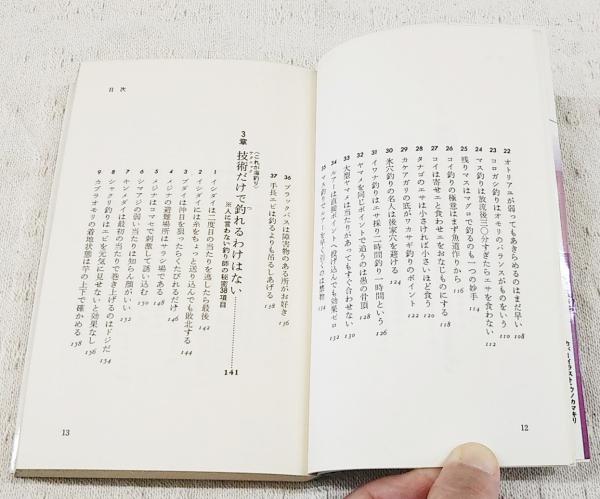 22 オトリアユが弱ってもあきらめるのはまだ早い 108
23 コロガシ釣りはオモリのバランスがものをいう 110
24 マス釣りは放流後三〇分すぎたらエサを食わない 112
25 残りマスはマグロで釣るのも一つの妙手 114
26 コイ釣りの極意はまず魚道作りから 116
27 コイは寄せエと食わせエをおなじものにする 118
28 タナゴのエサは小さければ小さいほど食う 120
29 カケアガリの底がワカサギ釣りのポイント 122
30 氷穴釣りの名人は後家穴を避ける 124
31 イワナ釣りはエサ採り二時間釣り一時間という 126
32 ヤマメを同じポイントで追うのは愚の骨頂 128
33 大型ヤマメは当たりがあってもすぐ合わせない 130
34 ルアーは直接ポイントへ投げ込んでも効果ゼロ 132
12
カバーイラスト・ウノカマキリ
目次
36 ブラックバスは障害物のある所がお好き 136
37 手長エビは釣るよりも吊るしあげる 138
3章 技術だけで釣れるわけはない…………141
〈これが海釣り〉
※人に言わない釣り師の秘密38項目
1 イシダイは二度目の当たりを逃したら最後 142
2 イシダイには糸をちょっと送り込んでも敗北する 144
3 ブダイは沖目を狙ったらくたびれるだけ 146
4 メジナの避難場所はサラシ場である 148
5 メジナはコマセで刺激して誘い込む 150
6 シマアジの弱い当たりは知らん顔がいい 152
7 キンメダイは最初の当たりで巻き上げるのはドジだ 154
8 シャクリ釣りはエビを元気に見せないと効果なし 156
9 カブラオモリの着地状態は竿の上下で確かめる 158
13